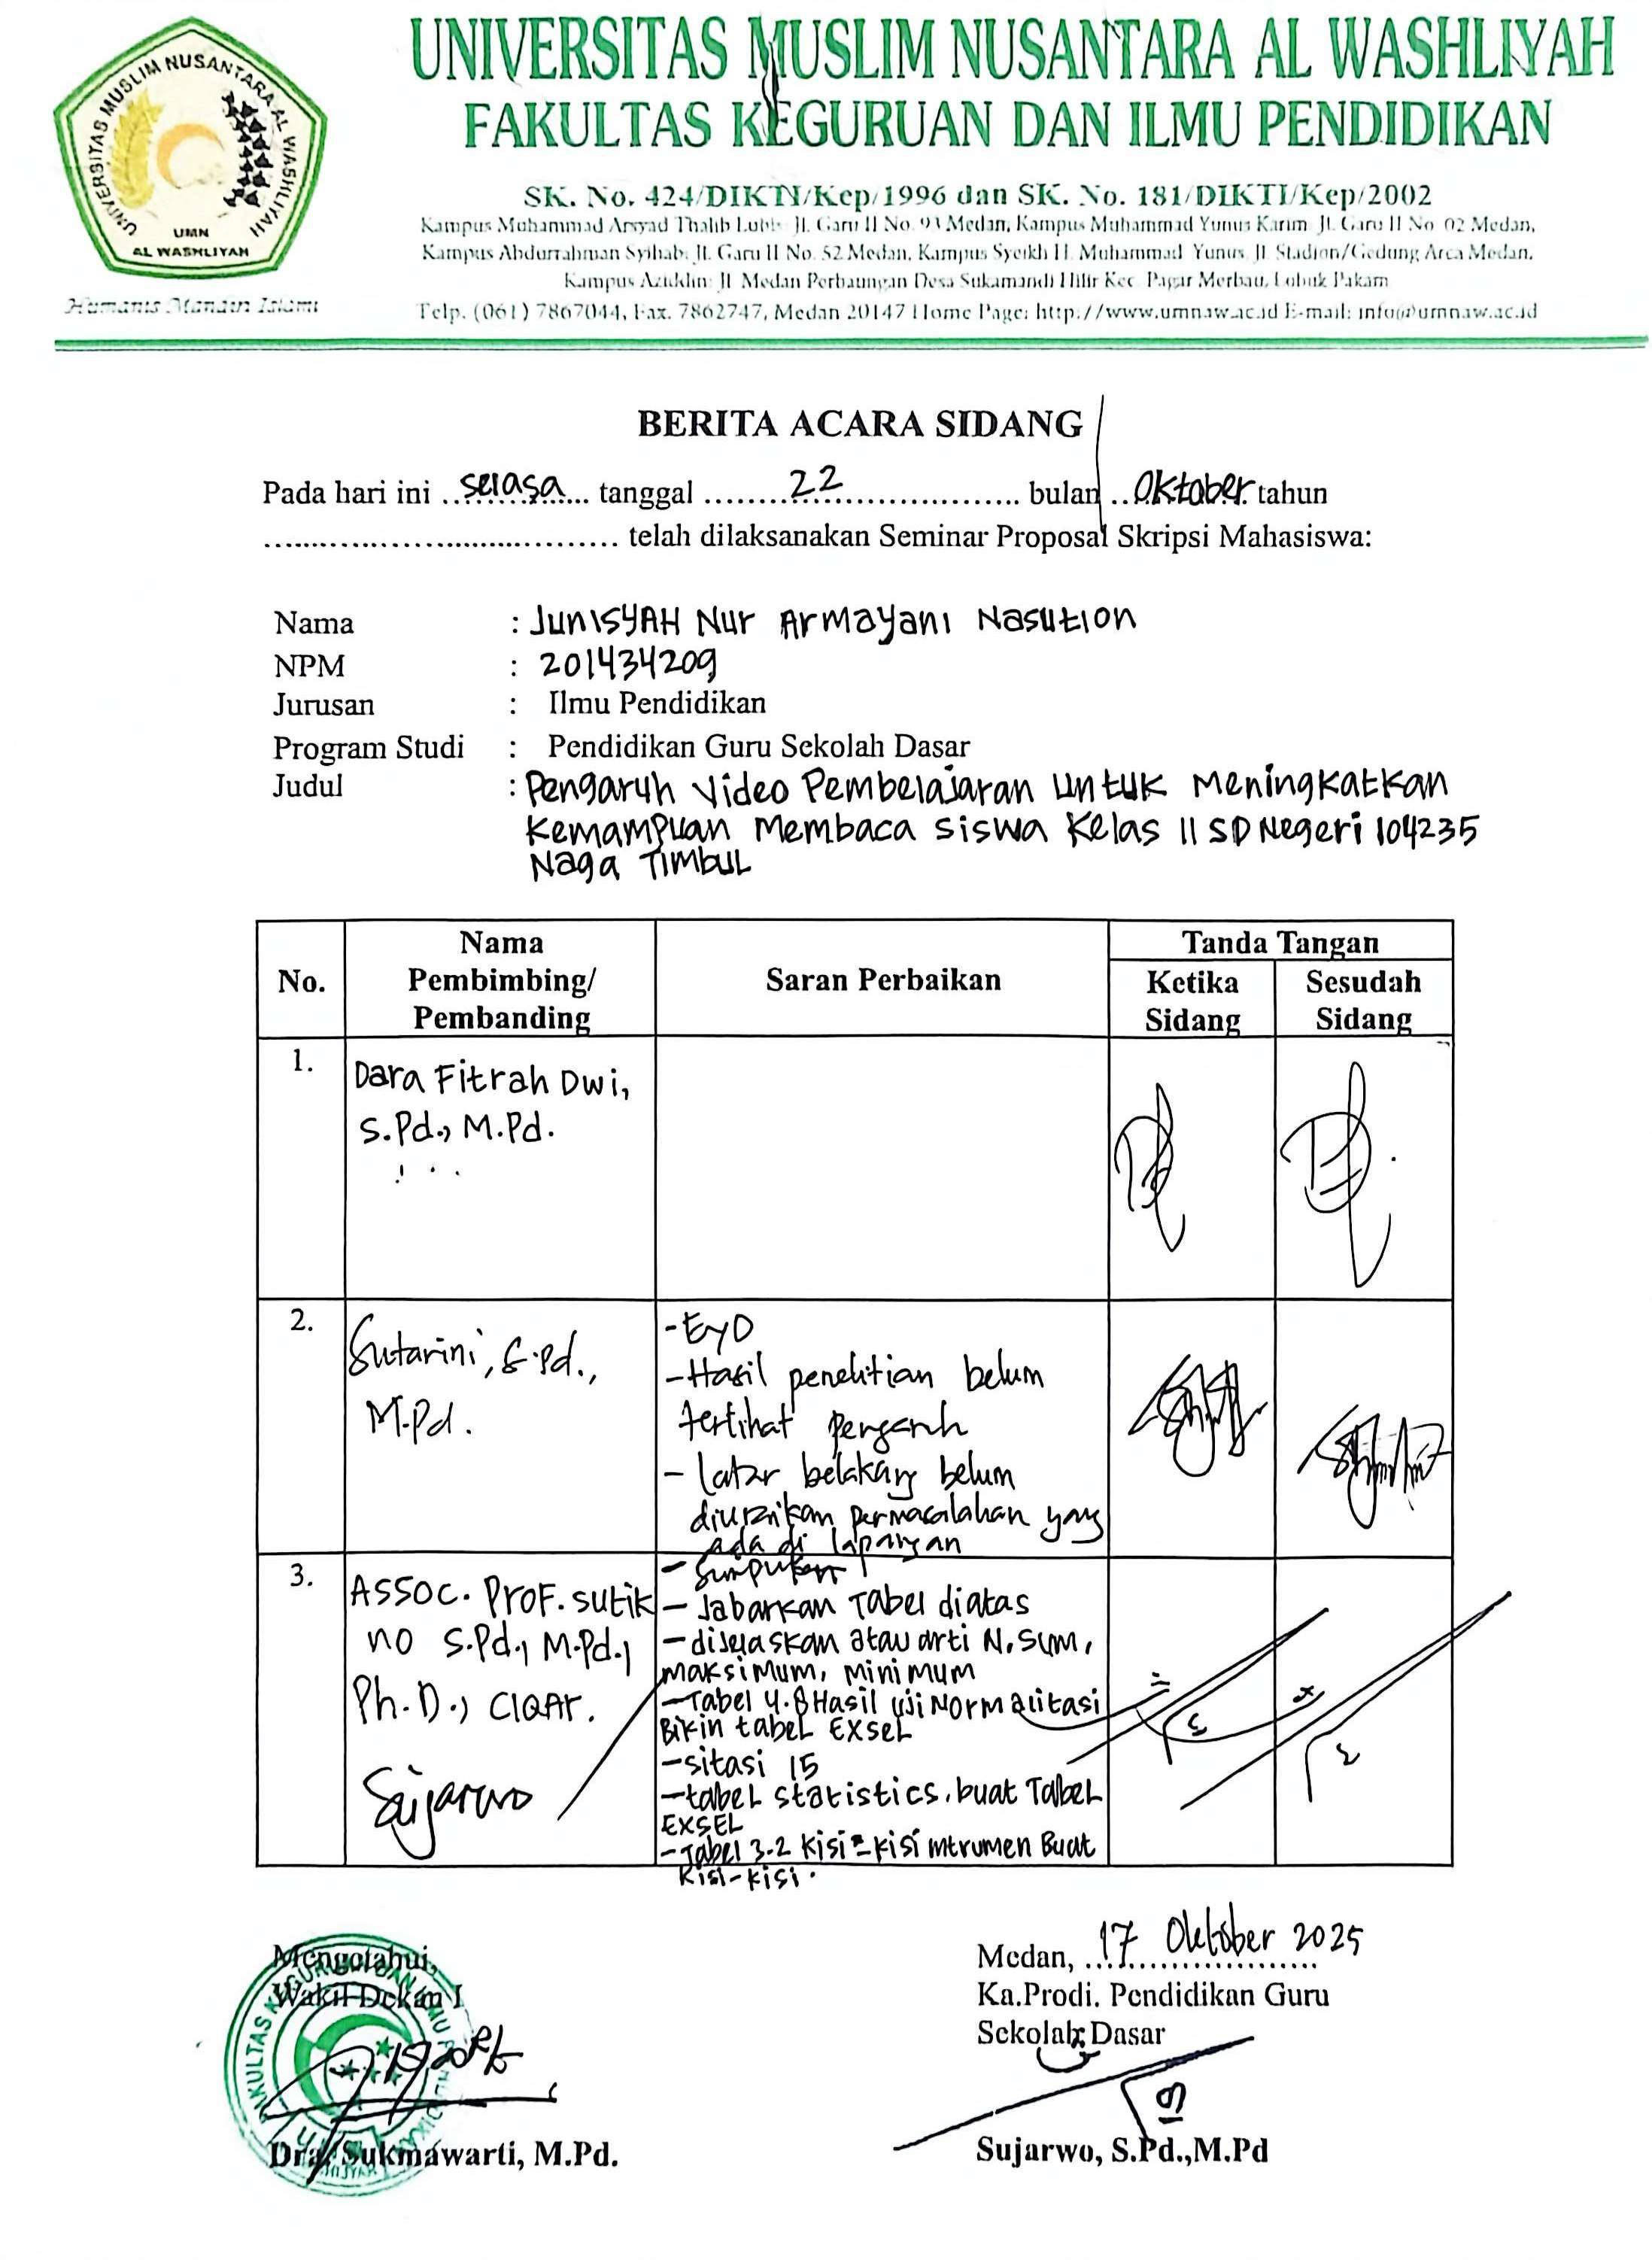 UNIVERSITAS MUSLIM NUSANTARA AL WASHLIYAH
UMN
AL WASHLIYAH
Humanis Mandiri Islami
UNIVERSITAS MUSLIM NUSANTARA AL WASHLIYAH
FAKULTAS KEGURUAN DAN ILMU PENDIDIKAN
SK. No. 424/DIKTI/Kep/1996 dan SK. No. 181/DIKTI/Kep/2002
Kampus Muhammad Arsyad Thalib Lubis: Jl. Garu II No. 93 Medan, Kampus Muhammad Yunus Karim: Jl. Garu II No. 02 Medan,
Kampus Abdurrahman Syihab: Jl. Garu II No. 52 Medan, Kampus Syeikh H. Muhammad Yunus, Jl. Stadion/Gedung Arca Medan,
Kampus Aziddin: Jl. Medan Perbaungan Desa Sukamandi Hilir Kec. Pagar Merbau, Lubuk Pakam
Telp. (061) 7867044, Fax. 7862747, Medan 20147 Home Page: http://www.umnaw.ac.id E-mail: info@umnaw.ac.id
BERITA ACARA SIDANG
Pada hari ini selasa tanggal 22 bulan Oktober tahun
telah dilaksanakan Seminar Proposal Skripsi Mahasiswa:
Nama : JUNISYAH Nur Armayani Nasution
NPM : 201434209
Jurusan : Ilmu Pendidikan
Program Studi : Pendidikan Guru Sekolah Dasar
Judul : Pengaruh Video Pembelajaran untuk Meningkatkan
Kemampuan Membaca Siswa Kelas II SD Negeri 104235
Naga Timbul
No. Nama Pembimbing/ Pembanding Saran Perbaikan Tanda Tangan
Ketika Sidang Sesudah Sidang
1. Dara Fitrah Dwi,
S.Pd., M.Pd.
2. Sutarini, S.Pd.,
M.Pd.
- EYD
- Hasil penelitian belum
terlihat pengaruh
- Latar belakang belum
diuraikan permasalahan yang
ada di lapangan
3. Assoc. Prof. Sutik
no S.Pd., M.Pd.,
Ph.D., CIQAR.
Sujarwo
- Simpulan
- Jabarkan Tabel diatas
- dijelaskan atau arti N, Sum,
maksimum, minimum
- Tabel 4.8 Hasil uji Normalitasi
Bikin tabel Exsel
- sitasi 15
- tabel statistics, buat Tabel
EXSEL
- Tabel 3.2 Kisi-kisi intrumen Buat
Kisi-kisi.
Mengetahui,
Wakil Dekan I
Dra. Sukmawarti, M.Pd.
Medan, 17 Oktober 2025
Ka.Prodi. Pendidikan Guru
Sekolah Dasar
Sujarwo, S.Pd.,M.Pd